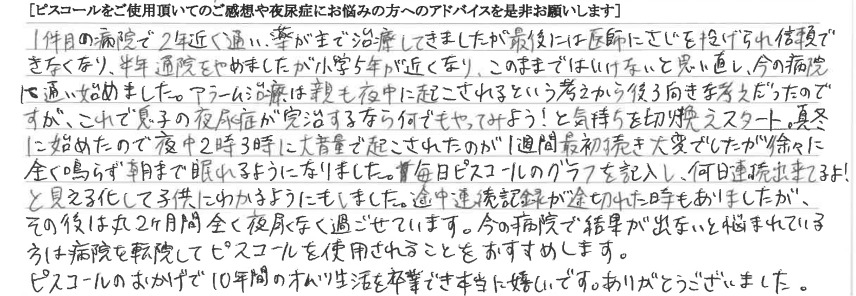 [ピスコールをご使用頂いてのご感想や夜尿症にお悩みの方へのアドバイスを是非お願いします]
1件目の病院で2年近く通い、薬がまで治療してきましたが最後には医師にさじを投げられ信頼で
きなくなり、半年通院をやめましたが小学5年が近くなり、このままではいけないと思い直し、今の病院
に通い始めました。アラーム治療は親も夜中に起こされるという考えから後ろ向きな考えだったので
すが、これで息子の夜尿症が完治するなら何でもやってみよう!と気持ちを切り換えスタート。真冬
に始めたので夜中2時3時に大音量で起こされたのが1週間最初続き大変でしたが徐々に
全く鳴らず朝まで眠れるようになりました。毎日ピスコールのグラフを記入し、何日連続出来てるよ!
と見える化して子供にわかるようにもしました。途中連続記録が途切れた時もありましたが、
その後は丸2ヶ月間全く夜尿なく過ごせています。今の病院で結果が出ないと悩まれている
方は病院を転院してピスコールを使用されることをおすすめします。
ピスコールのおかげで10年間のオムツ生活を卒業でき本当に嬉しいです。ありがとうございました。